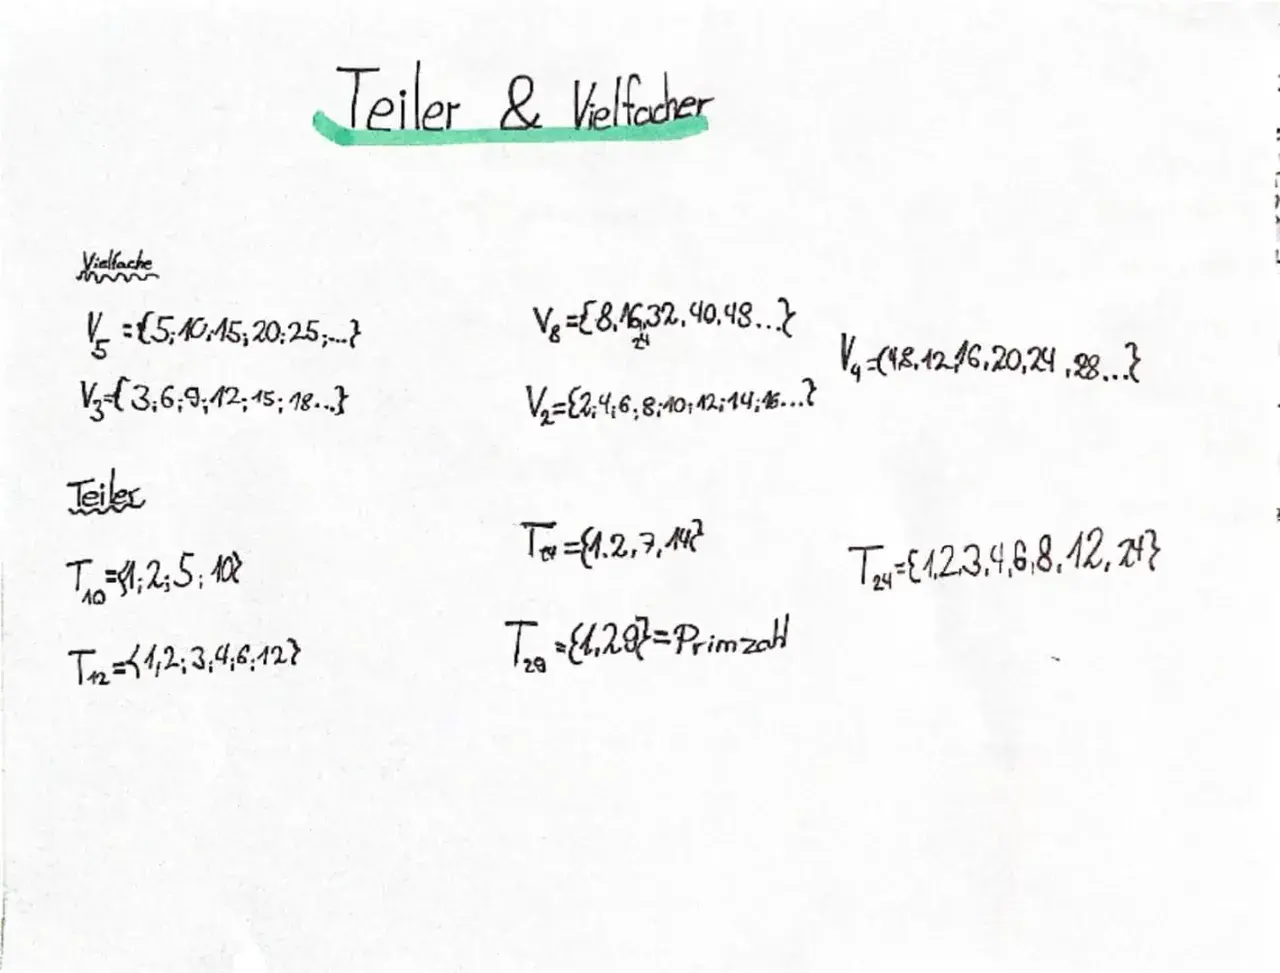 Teiler & Vielfacher
Vielfache
V5 ={5;10;15;20;25;...}
V8={8,16,32,40,48...}
24
V4={4,8,12,16,20,24,28...}
V3={3;6;9;12;15;18...}
V2={2;4;6;8;10;12;14;16...}
Teiler
T10={1;2;5;10}
T14={1,2,7,14}
T24={1,2,3,4,6,8,12,24}
T12={1,2;3,4;6;12}
T29={1,29}=Primzahl